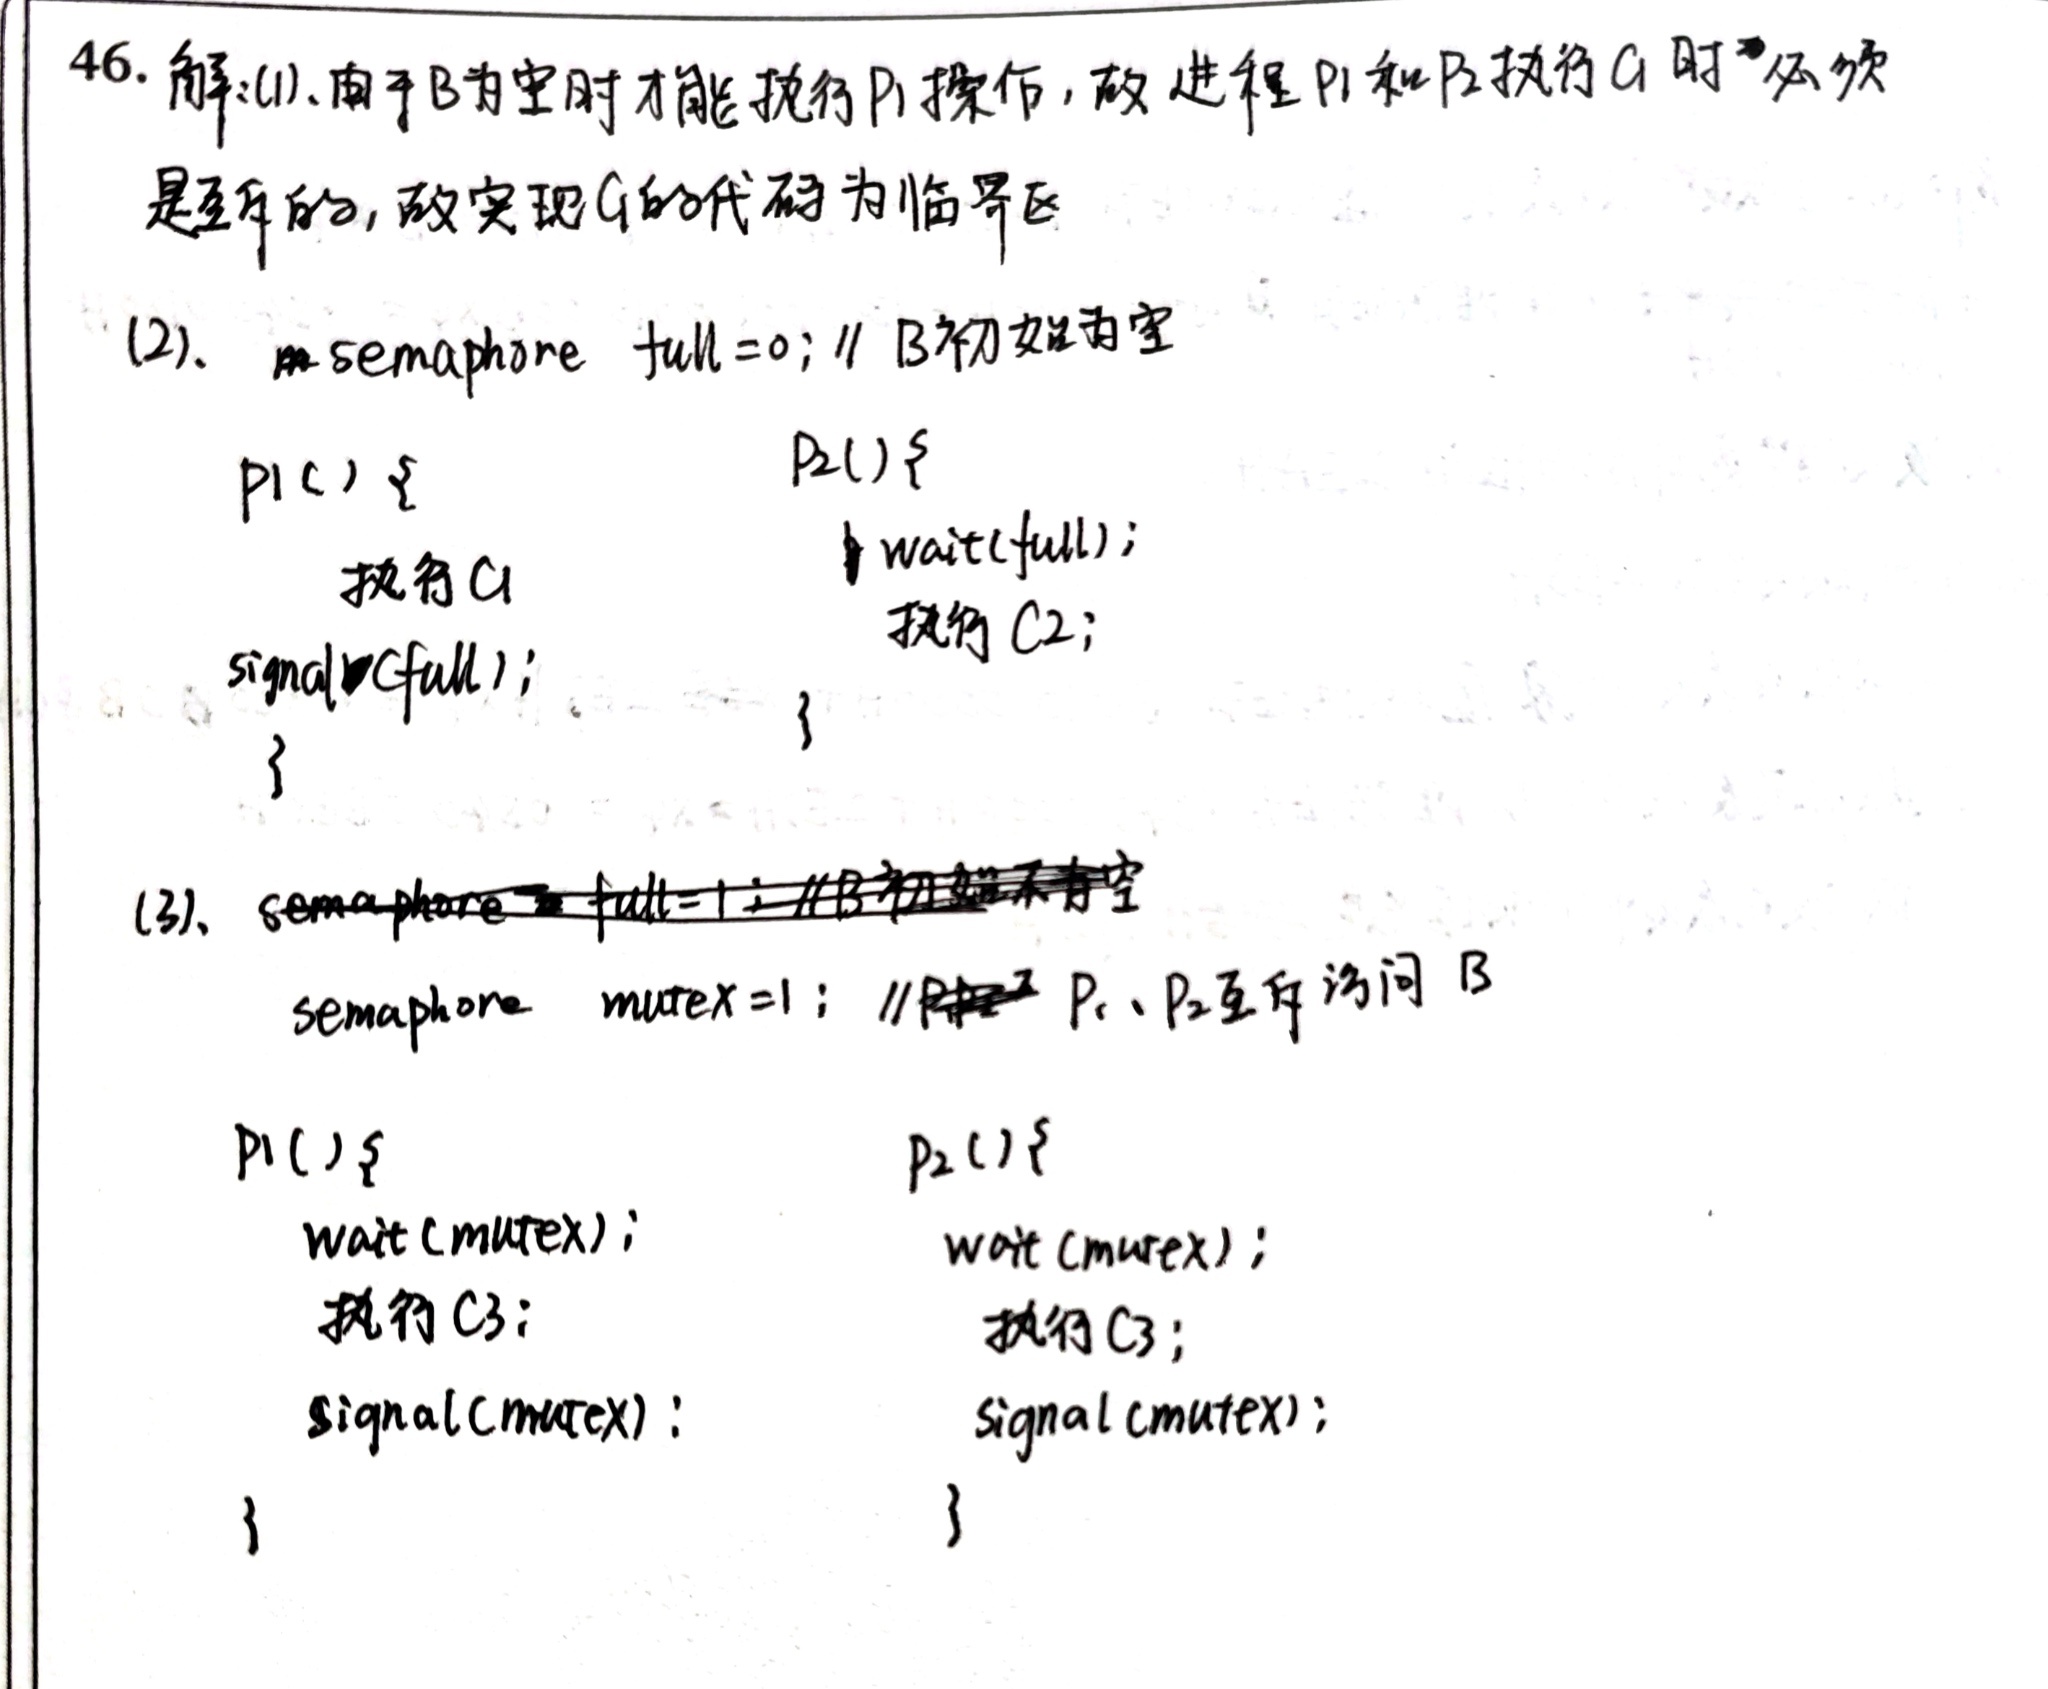 46. 解:(1)、由于B为空时才能执行P1操作，故进程P1和P2执行C1时必须
是互斥的，故实现C1的代码为临界区
(2)、 semaphore full=0; // B初始为空
P1() { P2() {
执行C1 wait(full);
signal(full); 执行C2;
} }
(3)、 semaphore full=1; //B初始不为空
semaphore mutex=1; // P1、P2互斥访问 B
P1() { P2() {
wait(mutex); wait(mutex);
执行C3; 执行C3;
signal(mutex); signal(mutex);
} }